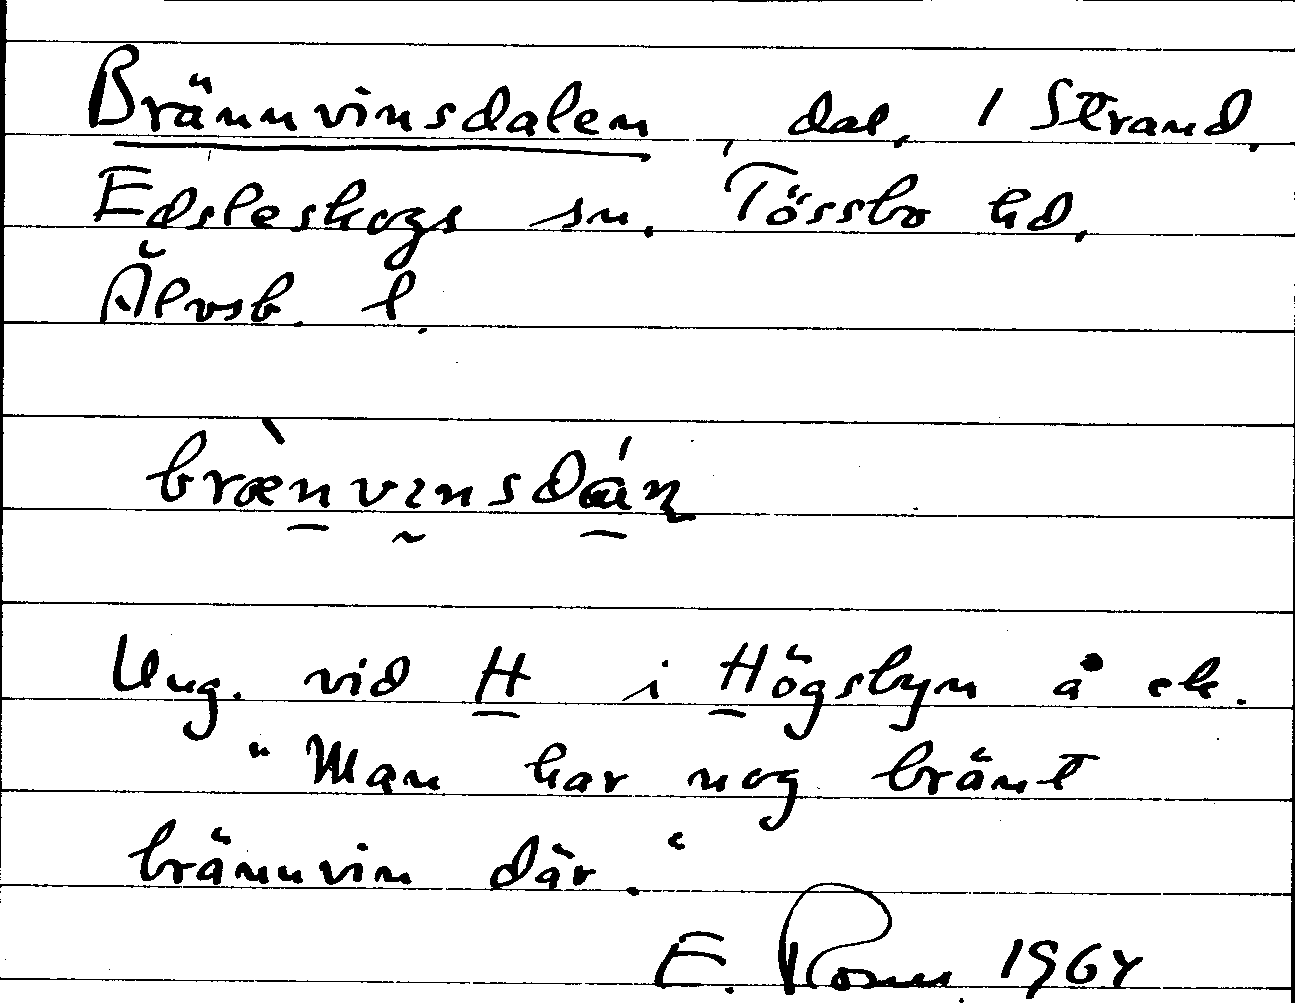 Brännvinsdalen, dal, 1 Strand,
Edsleskogs sn. Tössbo hd,
Älvsb. l.
Ung. vid H i Högsbyn å ek.
"Man har nog bränt
brännvin där."
E. Rosen 1964